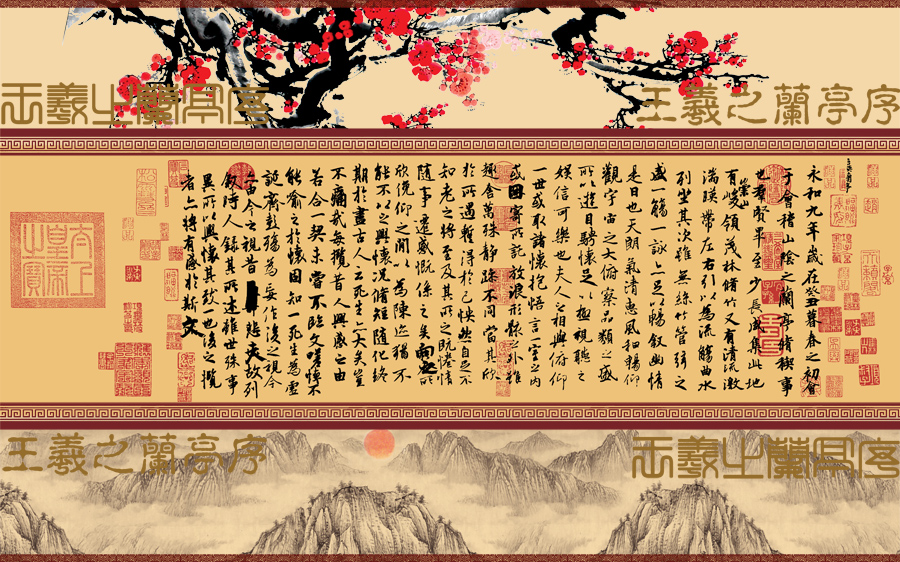 王羲之蘭亭序
王羲之蘭亭序
永和九年歲在癸丑暮春之初會
于會稽山陰之蘭亭脩稧事
也羣賢畢至少長咸集此地
有崇山峻領茂林脩竹又有清流激
湍暎帶左右引以為流觴曲水
列坐其次雖無絲竹管弦之
盛一觴一詠亦足以暢敘幽情
是日也天朗氣清惠風和暢仰
觀宇宙之大俯察品類之盛
所以遊目騁懷足以極視聽之
娛信可樂也夫人之相與俯仰
一世或取諸懷抱悟言一室之內
或因寄所託放浪形骸之外雖
趣舍萬殊靜躁不同當其欣
於所遇暫得於己怏然自足不
知老之將至及其所之既惓情
隨事遷感慨係之矣向之所
欣俛仰之閒以為陳迹猶不
能不以之興懷況脩短隨化終
期於盡古人云死生亦大矣豈
不痛哉每攬昔人興感之由
若合一契未嘗不臨文嗟悼不
能喻之於懷固知一死生為虛
誕齊彭殤為妄作後之視今
亦由今之視昔悲夫故列
敘時人錄其所述雖世殊事
異所以興懷其致一也後之攬
者亦將有感於斯文
太上皇帝之寶
王羲之蘭亭序
王羲之蘭亭序